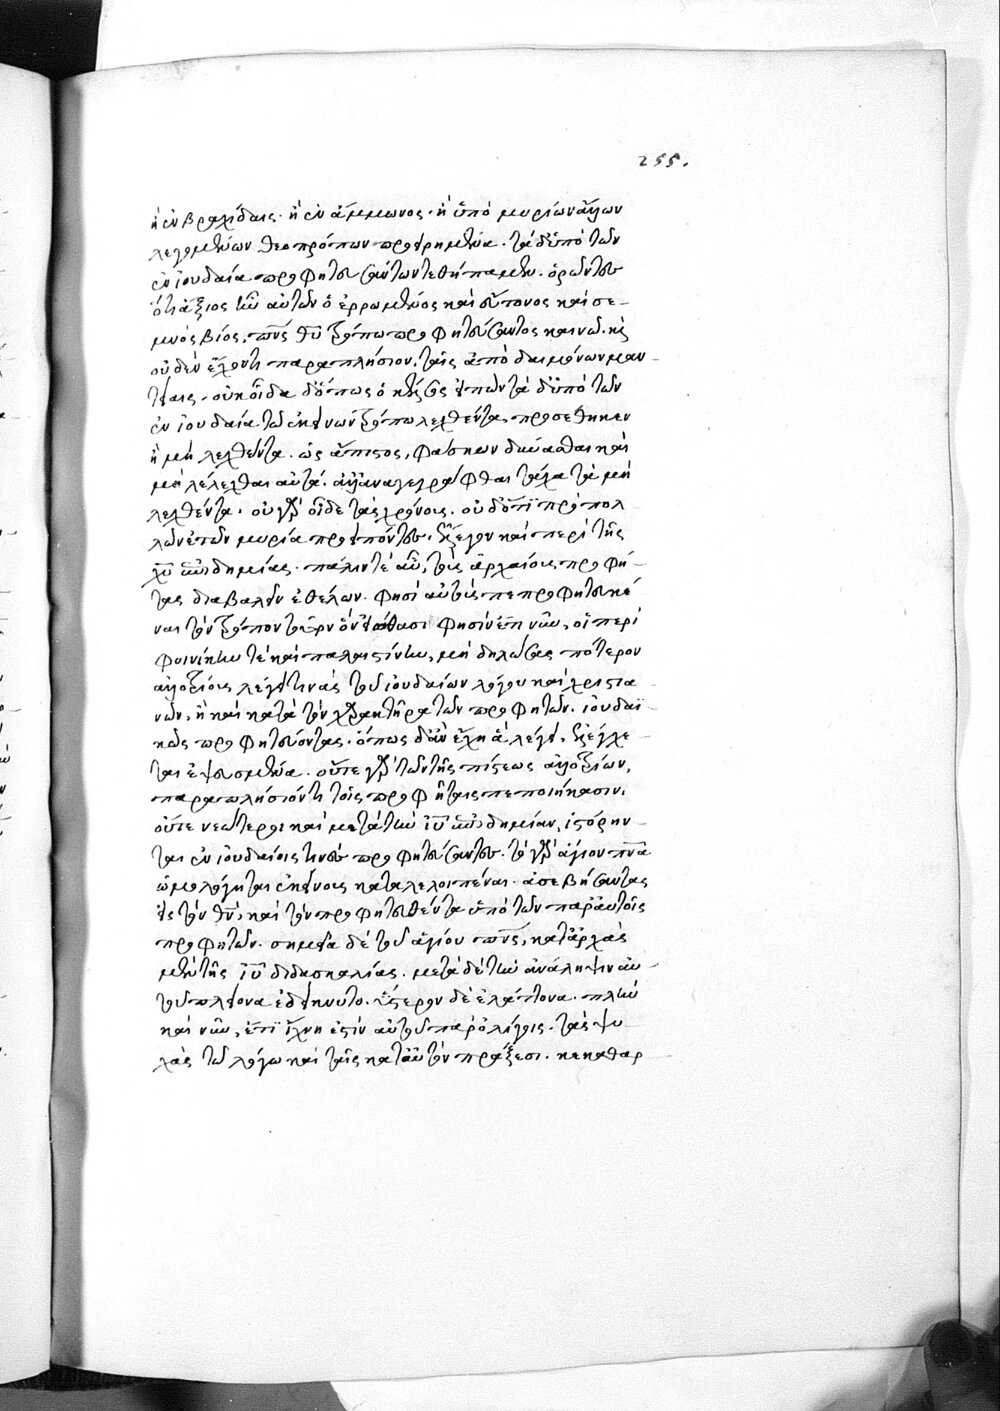 255.
ἢ ἐν βραγχίδαις· ἢ ἐν ἄμμωνος· ἢ ὑπὸ μυρίων ἄλλων
λεγομένων θεοπρόπων προειρημένα· τὰ δ' ὑπὸ τῶν
ἐν ἰουδαία προφητευσάντων τεθήπαμεν· ὁρῶντες
ὅτι ἄξιος ἦν αὐτῶν ὁ ἐρρωμένος καὶ εὔτονος καὶ σε-
μνὸς βίος, πνς θῦ τρόπω προφητεύσαντος καινῶ· κὶ
οὐδὲν ἔχοντι παραπλήσιον, ταῖς ἀπὸ δαιμόνων μαν-
τείαις· οὐκ οἶδα δ' ὅπως ὁ κέλσος εἰπὼν τὰ δ' ὑπὸ τῶν
ἐν ἰουδαία τῶ ἐκείνων τρόπω λεχθέντα, προσέθηκεν
ἢ μὴ λεχθέντα· ὡς ἄπιστος, φάσκων δύνασθαι καὶ
μὴ λελέχθαι αὐτά· ἀλλ' ἀναγεγράφθαι τάχα τὰ μὴ
λεχθέντα· οὐ γὰρ οἶδε τοὺς χρόνους· οὐδ' ὅτι πρὸ πολ
λῶν ἐτῶν μυρία προειπόντες, ἔλεγον καὶ περὶ τῆς
χῦ ἐπιδημίας· πάλιν τὲ αὖ, τοὺς ἀρχαίους προφή-
τας διαβαλεῖν ἐθέλων· φησὶ αὐτοὺς πεπροφητευκέ
ναι τὸν τρόπον τοῦτον ὃν εἰώθασι φησὶν ἔτι νῦν, οἱ περὶ
φοινίκην τὲ καὶ παλαιστίνην, μὴ δηλώσας πότερον
ἀλλοτρίους λέγει τινὰς τοῦ ἰουδαίων λόγου καὶ χριστια
νῶν, ἢ καὶ κατὰ τὸν χαρακτῆρα τῶν προφητῶν· ἰουδαϊ-
κῶς προφητεύοντας· ὅπως δ' ἂν ἔχη ἃ λέγει, ἐλέγχε-
ται ἐψευσμένα· οὔτε γὰρ τῶν τῆς πίστεως ἀλλοτρίων,
παραπλήσιόν τι τοῖς προφήταις πεποιήκασιν,
οὔτε νεώτεροι καὶ μετὰ τὴν ἰῦ ἐπιδημίαν, ἱστόρην-
ται ἐν ἰουδαίοις τινὲς προφητεύσαντες· τὸ γὰρ ἅγιον πνα
ὡμολόγηται ἐκείνους καταλελοιπέναι· ἀσεβήσαντας
εἰς τὸν θν, καὶ τὸν προφητευθέντα ὑπὸ τῶν παρ' αὐτοῖς
προφητῶν· σημεῖα δὲ τοῦ ἁγίου πνς, κατ' ἀρχὰς
μὲν τῆς ἰῦ διδασκαλίας· μετὰ δὲ τὴν ἀνάληψιν αὐ-
τοῦ πλείονα ἐδείκνυτο· ὕστερον δὲ ἐλάττονα· πλὴν
καὶ νῦν, ἔτι ἴχνη ἐστὶν αὐτοῦ παρ' ὀλίγοις· τὰς ψυ-
χὰς τῶ λόγω καὶ ταῖς κατ' αὐτὸν πράξεσι· κεκαθαρ